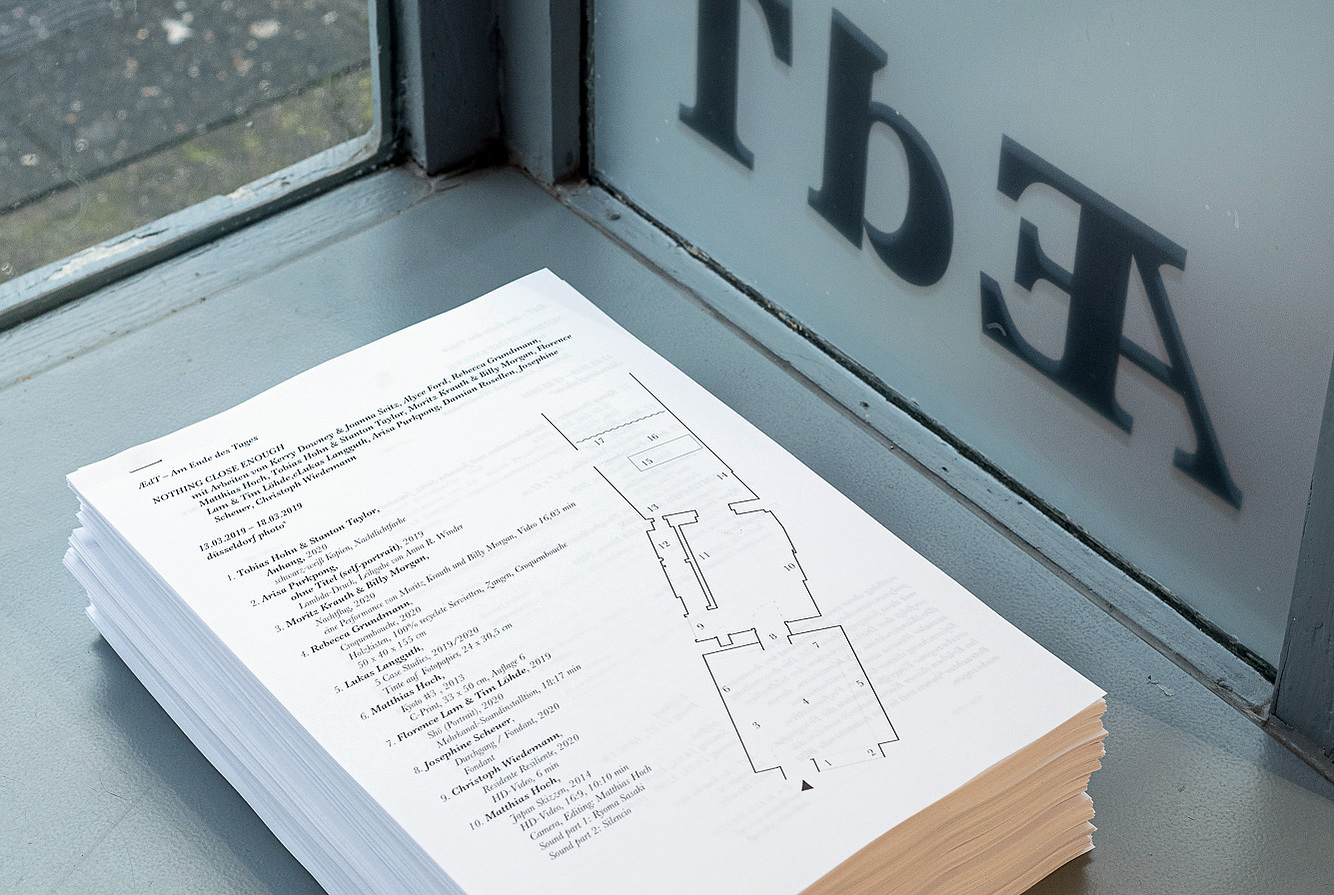 ÆdT – Am Ende des Tages
NOTHING CLOSE ENOUGH
mit Arbeiten von Kerry Downey & Joanna Seitz, Alyce Ford, Rebecca Grundmann,
Matthias Hoch, Tobias Hohn & Stanton Taylor, Moritz Krauth & Billy Morgan, Florence
Lam & Tim Löhde, Lukas Langguth, Arisa Purkpong, Damian Rosellen, Josephine
Scheuer, Christoph Wiedemann
13.03.2019 – 18.03.2019
düsseldorf photo+
1. Tobias Hohn & Stanton Taylor,
Anhang, 2020
schwarz-weiß Kopien, Nachtlichtfarbe
2. Arisa Purkpong,
ohne Titel (self-portrait), 2019
Lambda-Druck, Leihgabe von Anna R. Winder
3. Moritz Krauth & Billy Morgan,
Nachtflug, 2020
eine Performance von Moritz Krauth und Billy Morgan, Video 16,03 min
4. Rebecca Grundmann,
Croquembouche, 2020
Holzkästen, 100% recyclete Servietten, Zangen, Croquembouche
50 x 40 x 155 cm
5. Lukas Langguth,
5 Case Studies, 2019/2020
Tinte auf Fotopapier, 24 x 30,5 cm
6. Matthias Hoch,
Kyoto #3, 2013
C-Print, 33 x 50 cm, Auflage 6
7. Florence Lam & Tim Löhde, 2019
Shō (Portrait), 2020
Mehrkanal-Soundinstallation, 18:17 min
8. Josephine Scheuer,
Durchgang / Fondant, 2020
Fondant
9. Christoph Wiedemann,
Residente Resiliente, 2020
HD-Video, 6 min
10. Matthias Hoch,
Japan Skizzen, 2014
HD-Video, 16:9, 10:10 min
Camera, Editing: Matthias Hoch
Sound part 1: Ryoma Sasaki
Sound part 2: Silencio
17
16
15
14
13
12
11
10
9
8
7
6
5
4
3
2
1
ÆdT